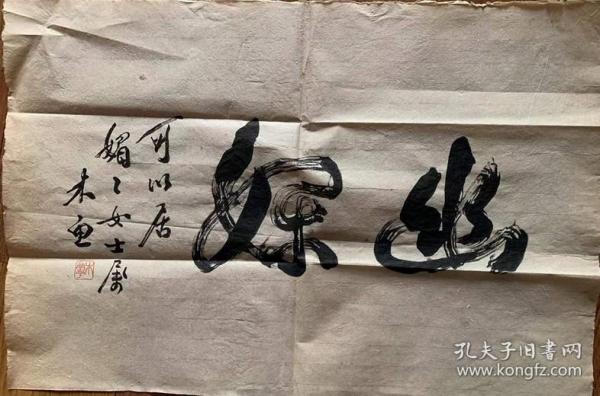 幽
可以居
媚々女士属
木鱼
孔夫子旧書网
www.kongfz.com